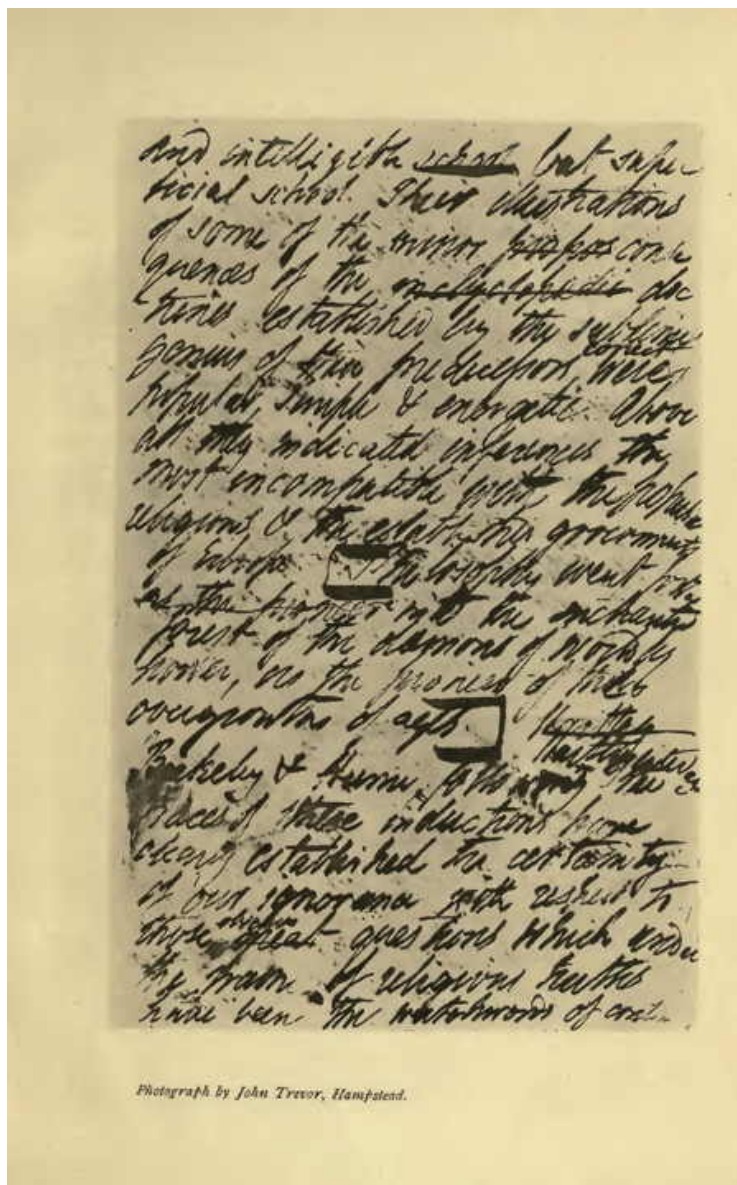 and intelligible school but super
ficial school. Their illustrations
of some of the minor conse
quences of the encyclopedic doc
trines established by the sublime
genius of their predecessors were correct
popular, simple & energetic. Above
all they indicated inferences the
most incompatible with the popular
religions & the established governments
of Europe Philosophy went forth
into the enchanted
forest of the daemons of worldly
power, as the pioneer of the
overgrowths of ages.
Berkeley & Hume, following the
traces of these inductions have
clearly established the certainty
of our ignorance with respect to
those obscure great questions which under
the name of religious truths
have been the watchwords of
Photograph by John Trevor, Hampstead.